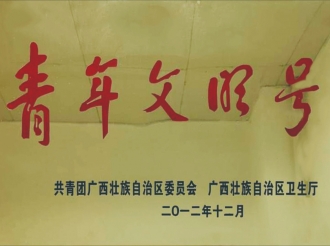 青年文明号
共青团广西壮族自治区委员会 广西壮族自治区卫生厅
二〇一二年十二月